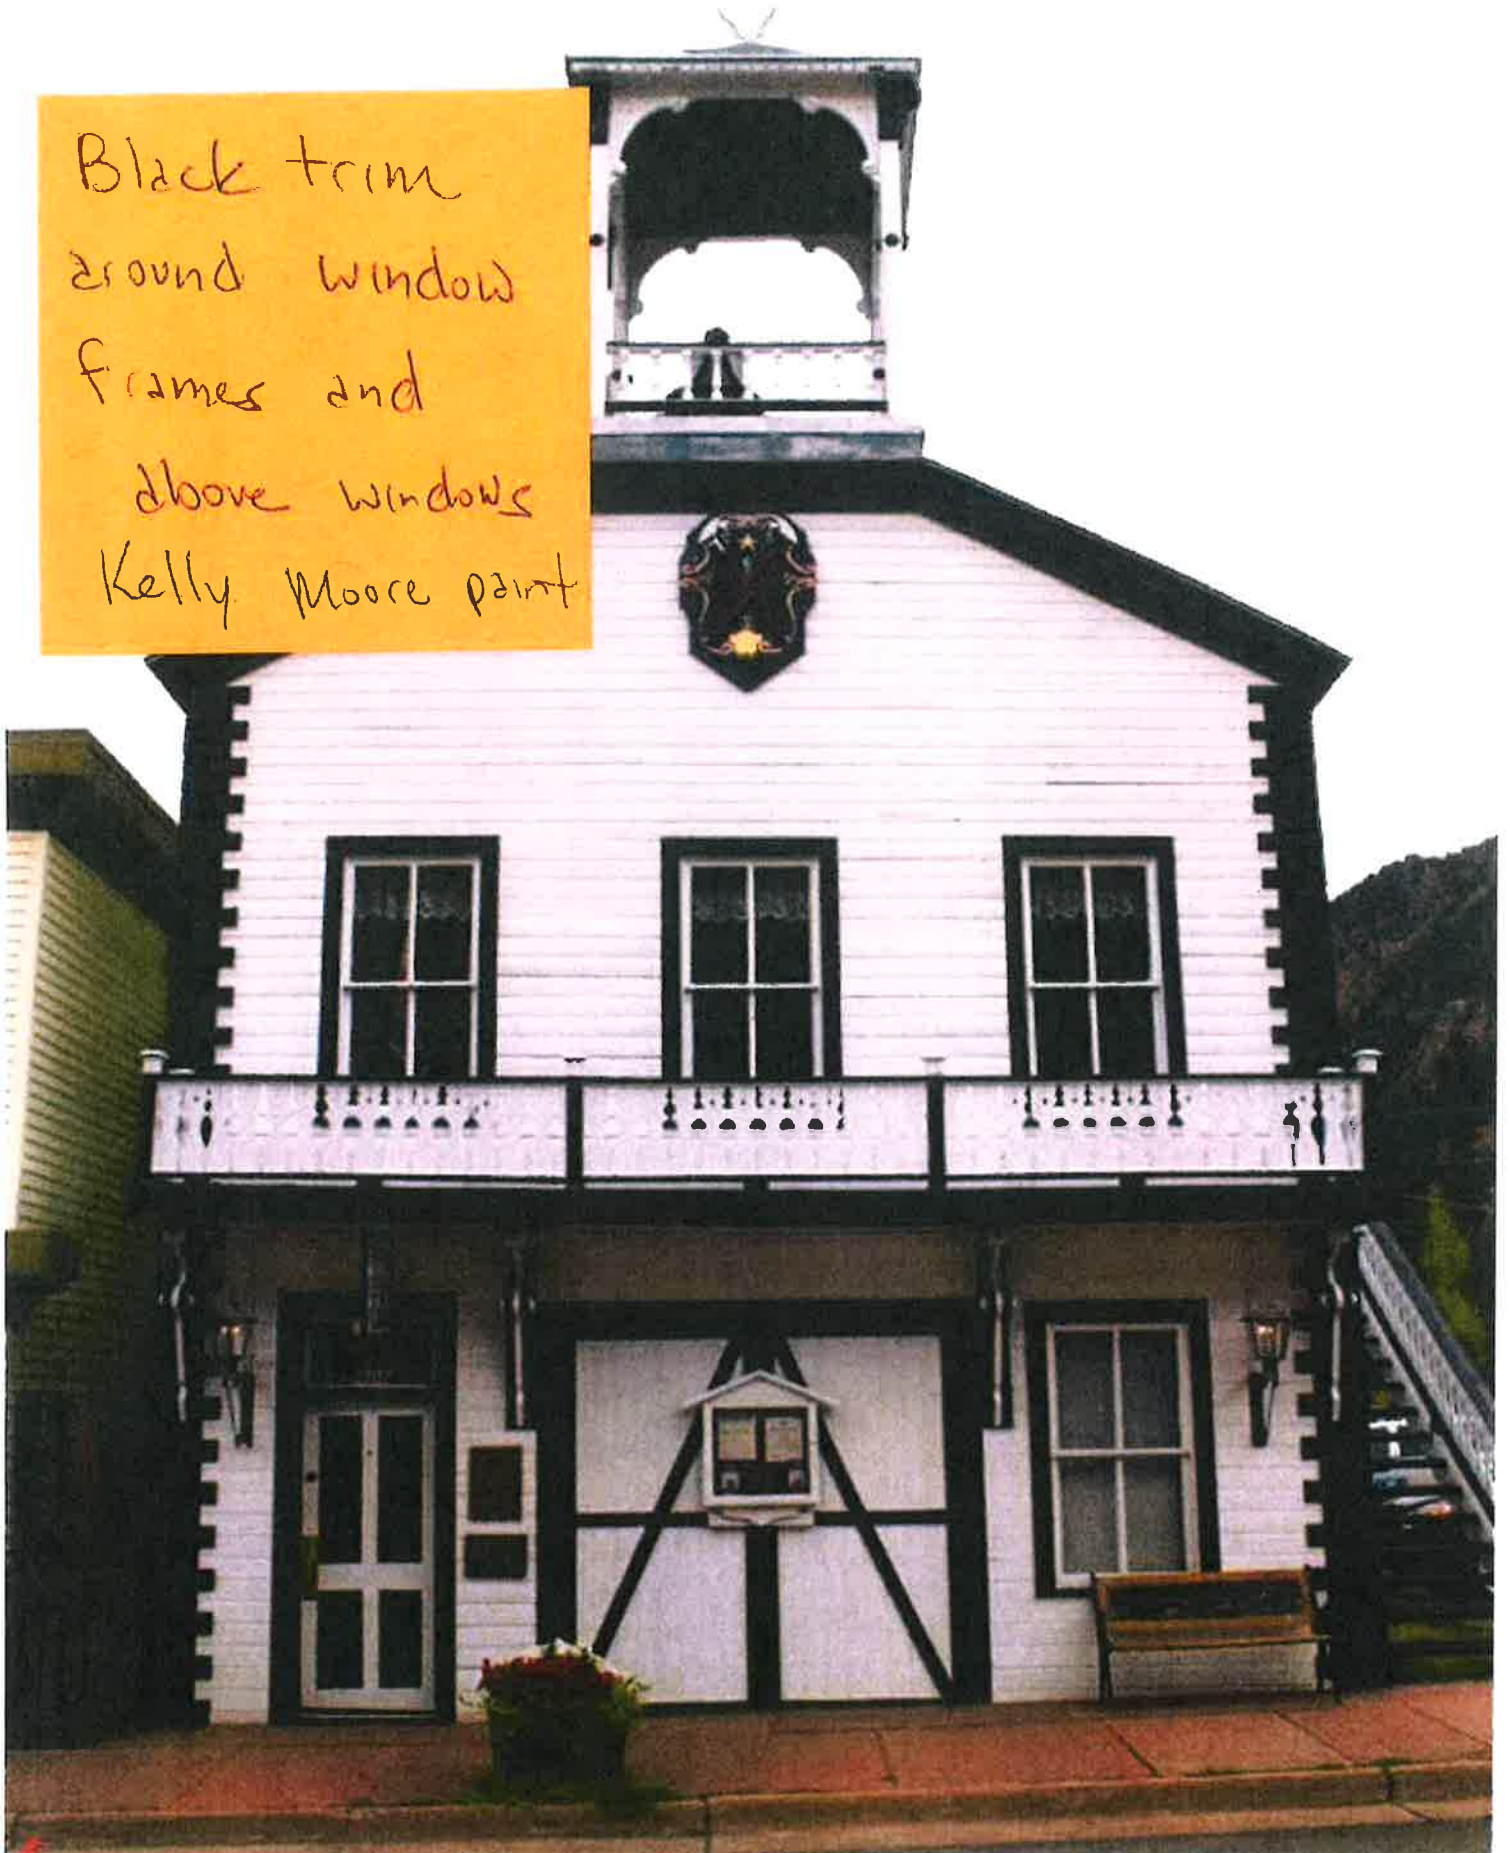 Black trim
around window
frames and
above windows
Kelly Moore paint